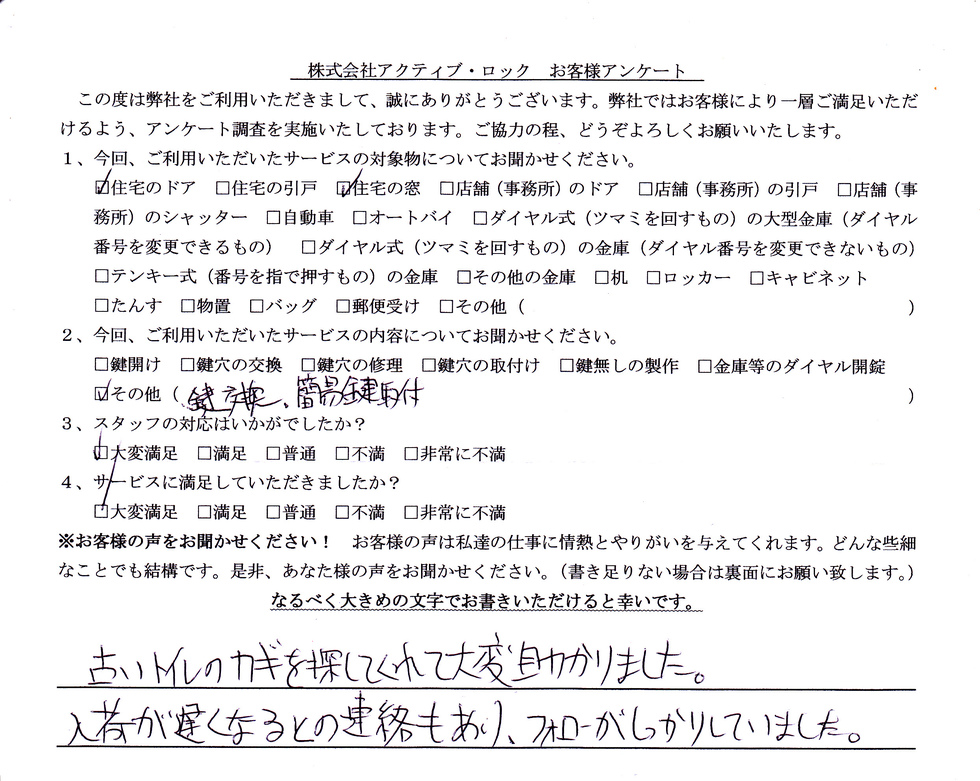 株式会社アクティブ・ロック　お客様アンケート
この度は弊社をご利用いただきまして、誠にありがとうございます。弊社ではお客様により一層ご満足いただ
けるよう、アンケート調査を実施いたしております。ご協力の程、どうぞよろしくお願いいたします。
1、今回、ご利用いただいたサービスの対象物についてお聞かせください。
☑住宅のドア　□住宅の引戸　☑住宅の窓　□店舗（事務所）のドア　□店舗（事務所）の引戸　□店舗（事
務所）のシャッター　□自動車　□オートバイ　□ダイヤル式（ツマミを回すもの）の大型金庫（ダイヤル
番号を変更できるもの）　□ダイヤル式（ツマミを回すもの）の金庫（ダイヤル番号を変更できないもの）
□テンキー式（番号を指で押すもの）の金庫　□その他の金庫　□机　□ロッカー　□キャビネット
□たんす　□物置　□バッグ　□郵便受け　□その他（　）
2、今回、ご利用いただいたサービスの内容についてお聞かせください。
□鍵開け　□鍵穴の交換　□鍵穴の修理　□鍵穴の取付け　□鍵無しの製作　□金庫等のダイヤル開錠
☑その他（鍵交換、簡易鍵取付）
3、スタッフの対応はいかがでしたか？
☑大変満足　□満足　□普通　□不満　□非常に不満
4、サービスに満足していただきましたか？
☑大変満足　□満足　□普通　□不満　□非常に不満
※お客様の声をお聞かせください！　お客様の声は私達の仕事に情熱とやりがいを与えてくれます。どんな些細
なことでも結構です。是非、あなた様の声をお聞かせください。（書き足りない場合は裏面にお願い致します。）
なるべく大きめの文字でお書きいただけると幸いです。
古いトイレのカギを探してくれて大変助かりました。
入荷が遅くなるとの連絡もあり、フォローがしっかりしていました。